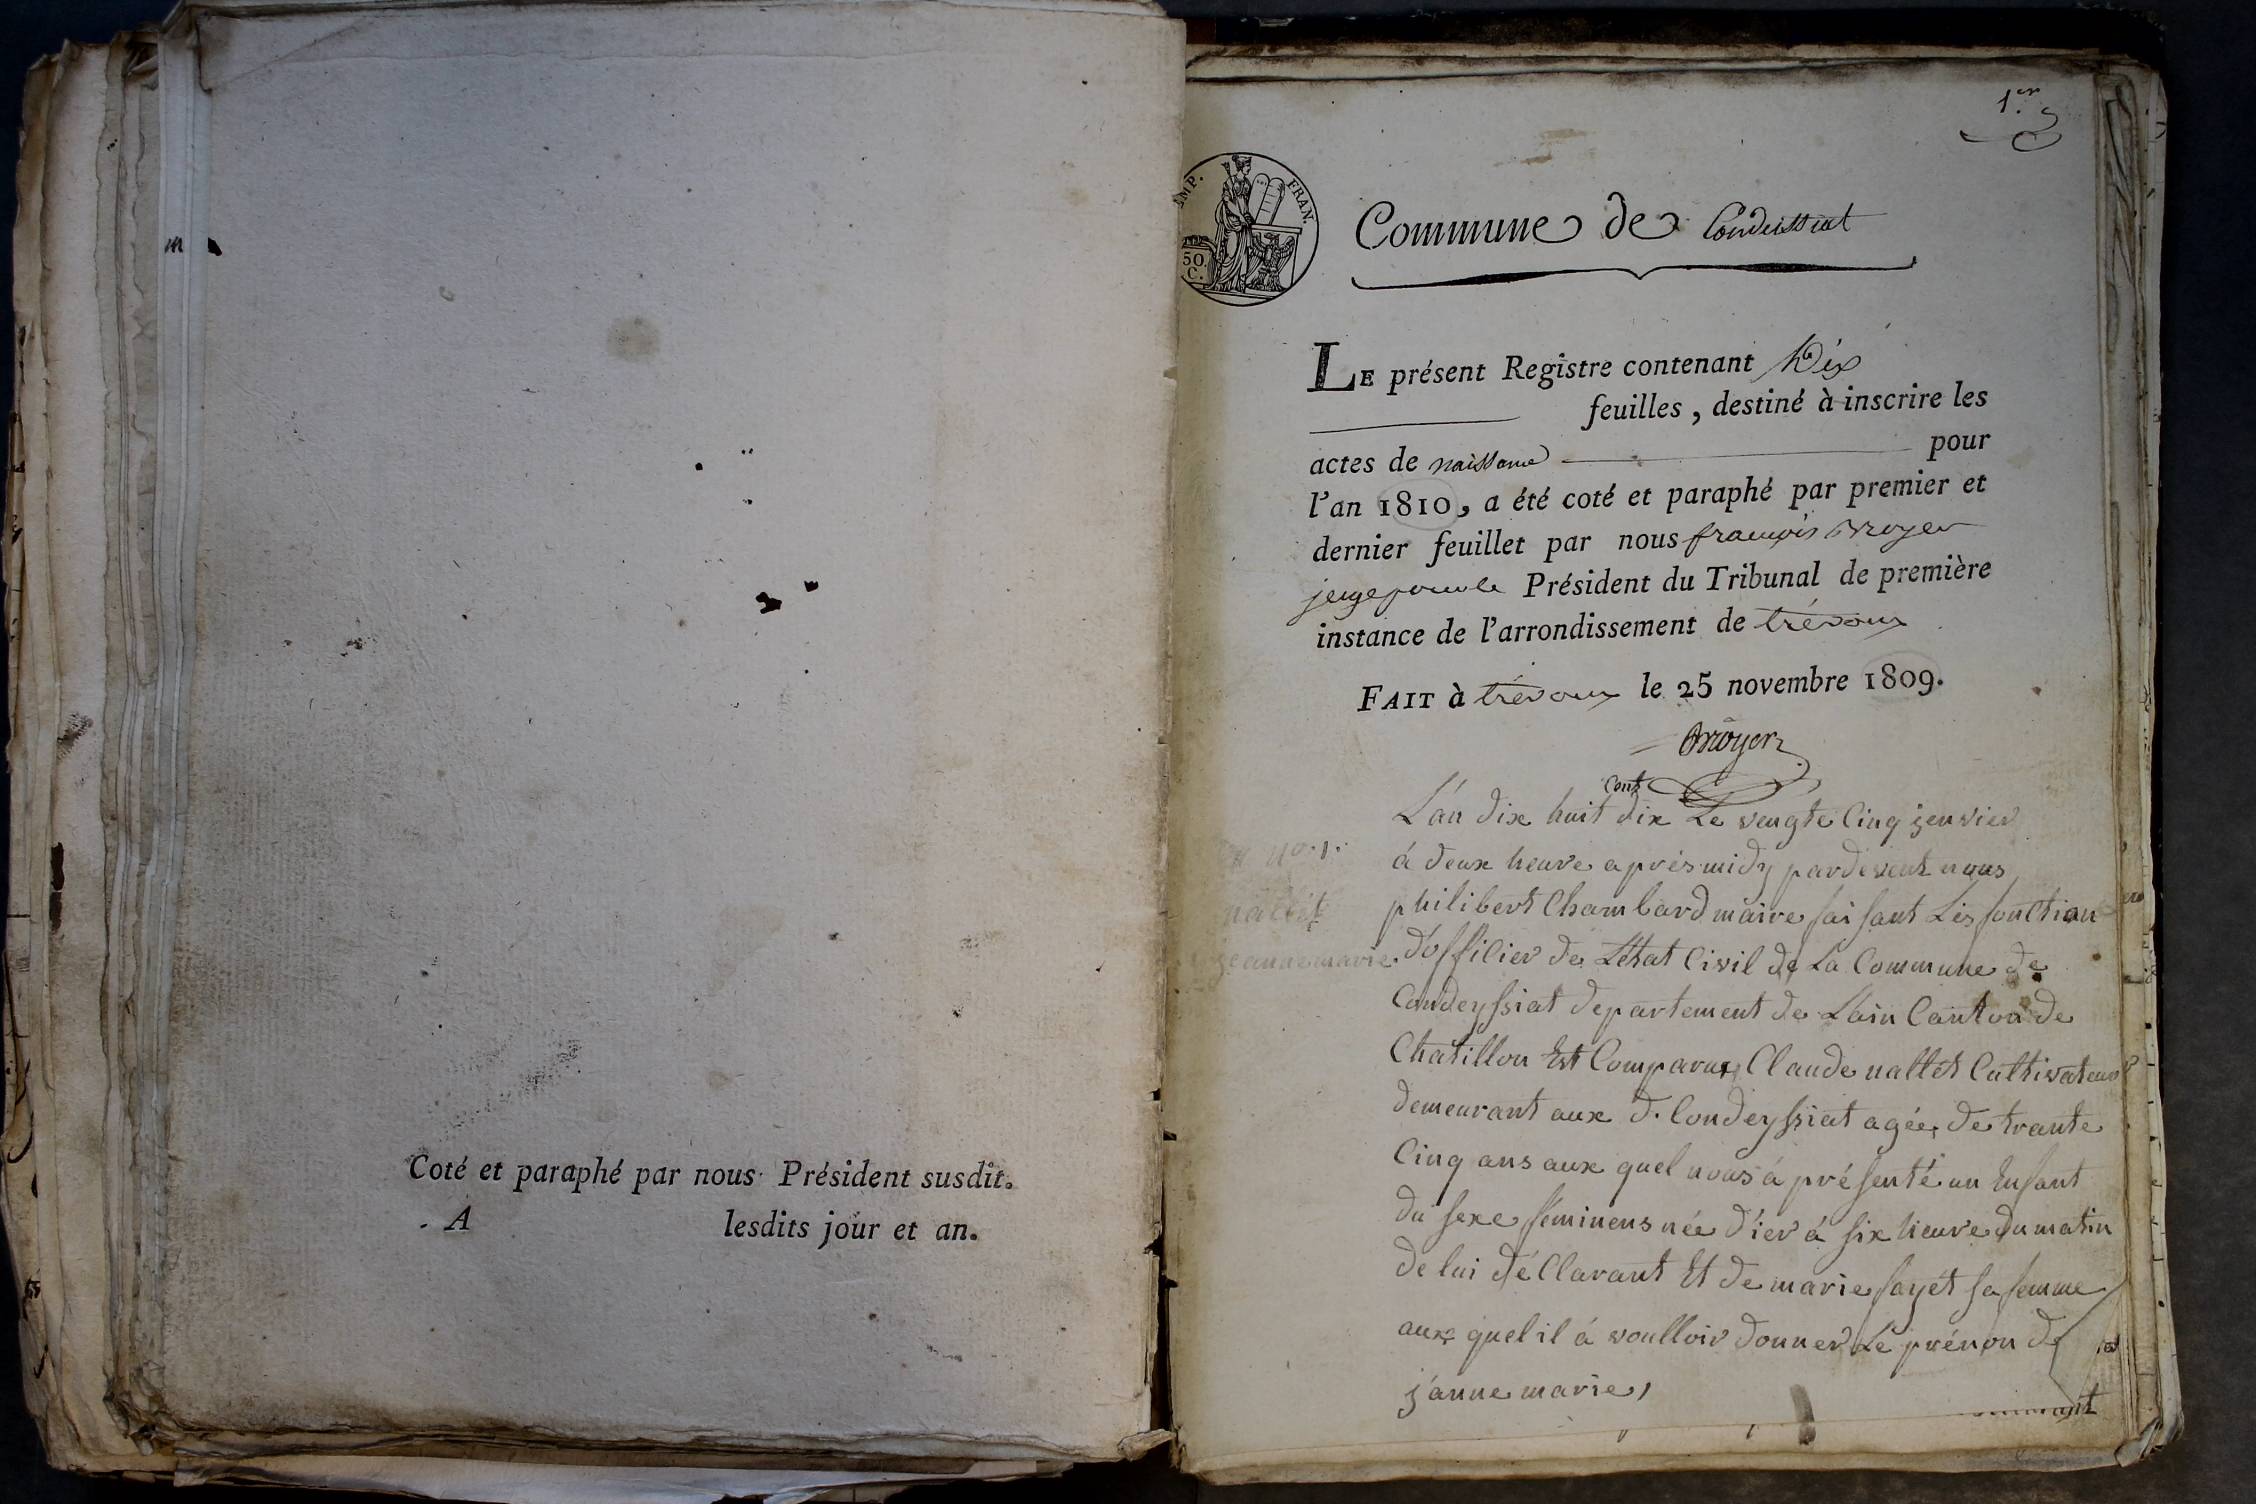 m
Coté et paraphé par nous Président susdit.
A lesdits jour et an.
1.er
IMP. FRAN.
50 C.
Commune de Condeissiat
LE présent Registre contenant Dix
feuilles, destiné à inscrire les
actes de naissance pour
l'an 1810, a été coté et paraphé par premier et
dernier feuillet par nous françois
juge pour le Président du Tribunal de première
instance de l'arrondissement de trévoux
FAIT à trévoux le 25 novembre 1809.
Cent
L'an dix huit dix Le vengte Cinq jenvier
á deux heure aprés midy pardevent nous
philibert Chambard maire faisant Les fonction
d'officier de L'état Civil de La Commune de
Condeyssiat departement de Lain Canton de
Chatillon Est Comparux Claude nallét Cultivateur
demeurant aux d. Condeyssiat agée de trante
Cinq ans aux quel nous á présenté un Enfant
du sexe feminens née d'ier á six heure du matin
de lui déClarant Et de marie fayét sa femme
aux quel il á voulloir donner Le prénon de
janne marie,
no. 1.
nallét
jeanne marie